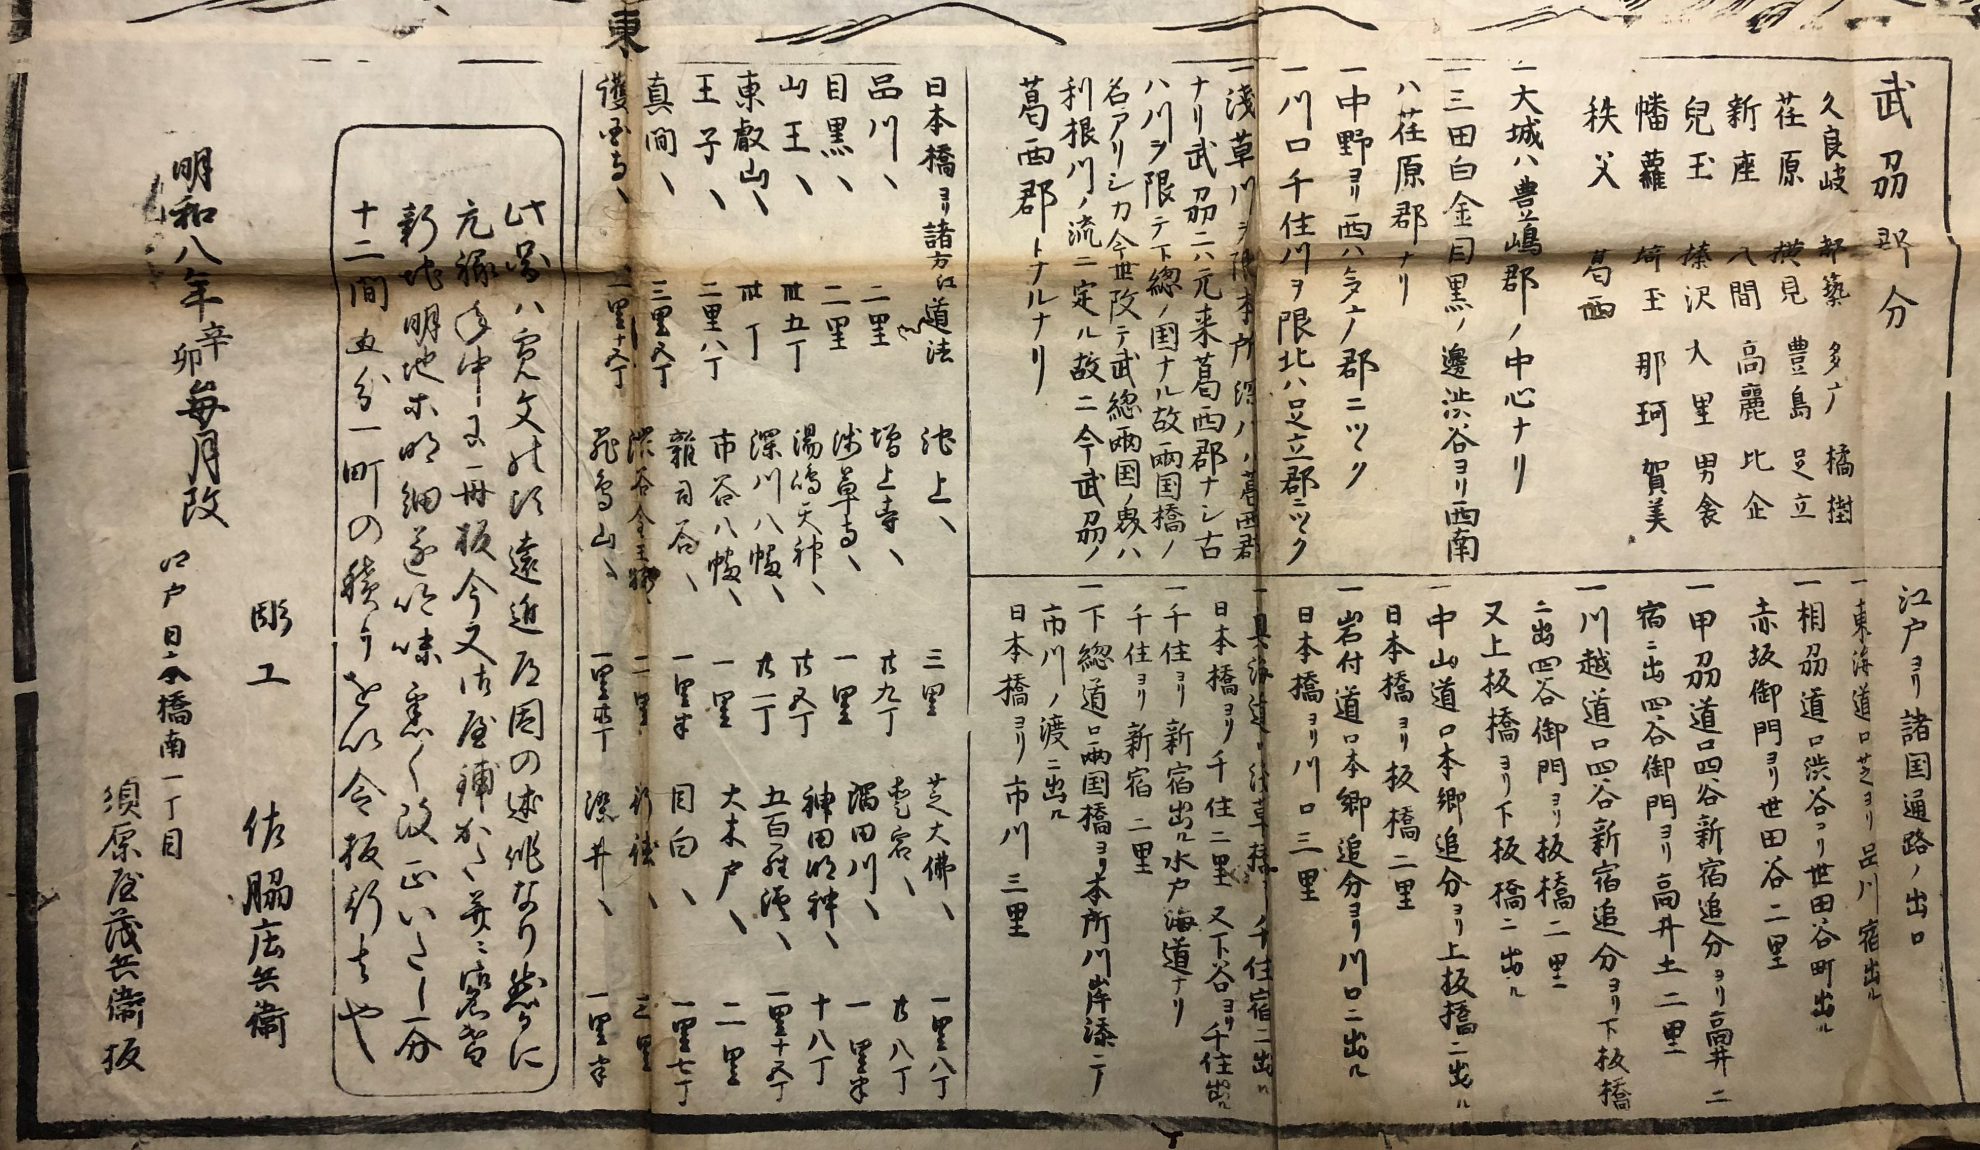 東
武刕郡分
久良岐 都築 多广 橘樹
荏原 横見 豊島 足立
新座 入間 高麗 比企
兒玉 榛沢 大里 男衾
幡羅 埼玉 那珂 賀美
秩父 葛西
一大城ハ豊嶋郡ノ中心ナリ
一三田白金目黒ノ邊渋谷ヨリ西南
ハ荏原郡ナリ
一中野ヨリ西ハ多广ノ郡ニツヾク
一川口千住川ヲ限北ハ足立郡ニツヾク
一淺草川ヲ限本所深川ハ葛西郡
ナリ武刕ニハ元来葛西郡ナシ古
ハ川ヲ限テ下總ノ国ナル故両国橋ノ
名アリシカ今世改テ武総兩国ノ界ハ
利根川ノ流ニ定ル故ニ今武刕ノ
葛西郡トナルナリ
江戸ヨリ諸国通路ノ出口
一東海道口芝ヨリ品川宿出ル
一相刕道口渋谷ヨリ世田谷町出ル
赤坂御門ヨリ世田谷二里
一甲刕道口四谷新宿追分ヨリ高井ニ
宿ニ出四谷御門ヨリ高井土二里
一川越道口四谷新宿追分ヨリ下板橋
ニ出四谷御門ヨリ板橋二里
又上板橋ヨリ下板橋ニ出ル
一中山道口本郷追分ヨリ上板橋ニ出ル
日本橋ヨリ板橋二里
一岩付道口本郷追分ヨリ川口ニ出ル
日本橋ヨリ川口三里
一奥海道口浅草橋ヨリ千住宿ニ出ル
日本橋ヨリ千住二里又下谷ヨリ千住出ル
一千住ヨリ新宿出ル水戸海道ナリ
千住ヨリ新宿二里
一下総道口両国橋ヨリ本所川岸添ニテ
市川ノ渡ニ出ル
日本橋ヨリ市川三里
日本橋ヨリ諸方江道法
品川、 二里
目黒、 二里
山王、 卅五丁
東叡山、 卅丁
王子、 二里八丁
真間、 三里五丁
護国寺、 一里十五丁
池上、 三里
増上寺、 廿九丁
浅草寺、 一里
湯嶋天神、 廿五丁
深川八幡、 廿一丁
市谷八幡、 一里
雜司谷、 一里半
渋谷金王桜、 二里
飛鳥山、
芝大佛、 一里八丁
廿八丁
隅田川、 一里半
神田明神、 十八丁
五百羅漢、 一里十五丁
大木戸、 二里
目白、 一里七丁
三里
染井、 一里半
此図ハ寛文の頃遠近道印の述作なり然るに
元禄年中に再板今又
新地明地等明細逐吟味悉く改正いたし一分
十二間五分一町の積りを以令板行者也
明和八年 辛卯 毎月改
彫工 佐脇庄兵衛
江戸日本橋南一丁目
須原屋茂兵衛板